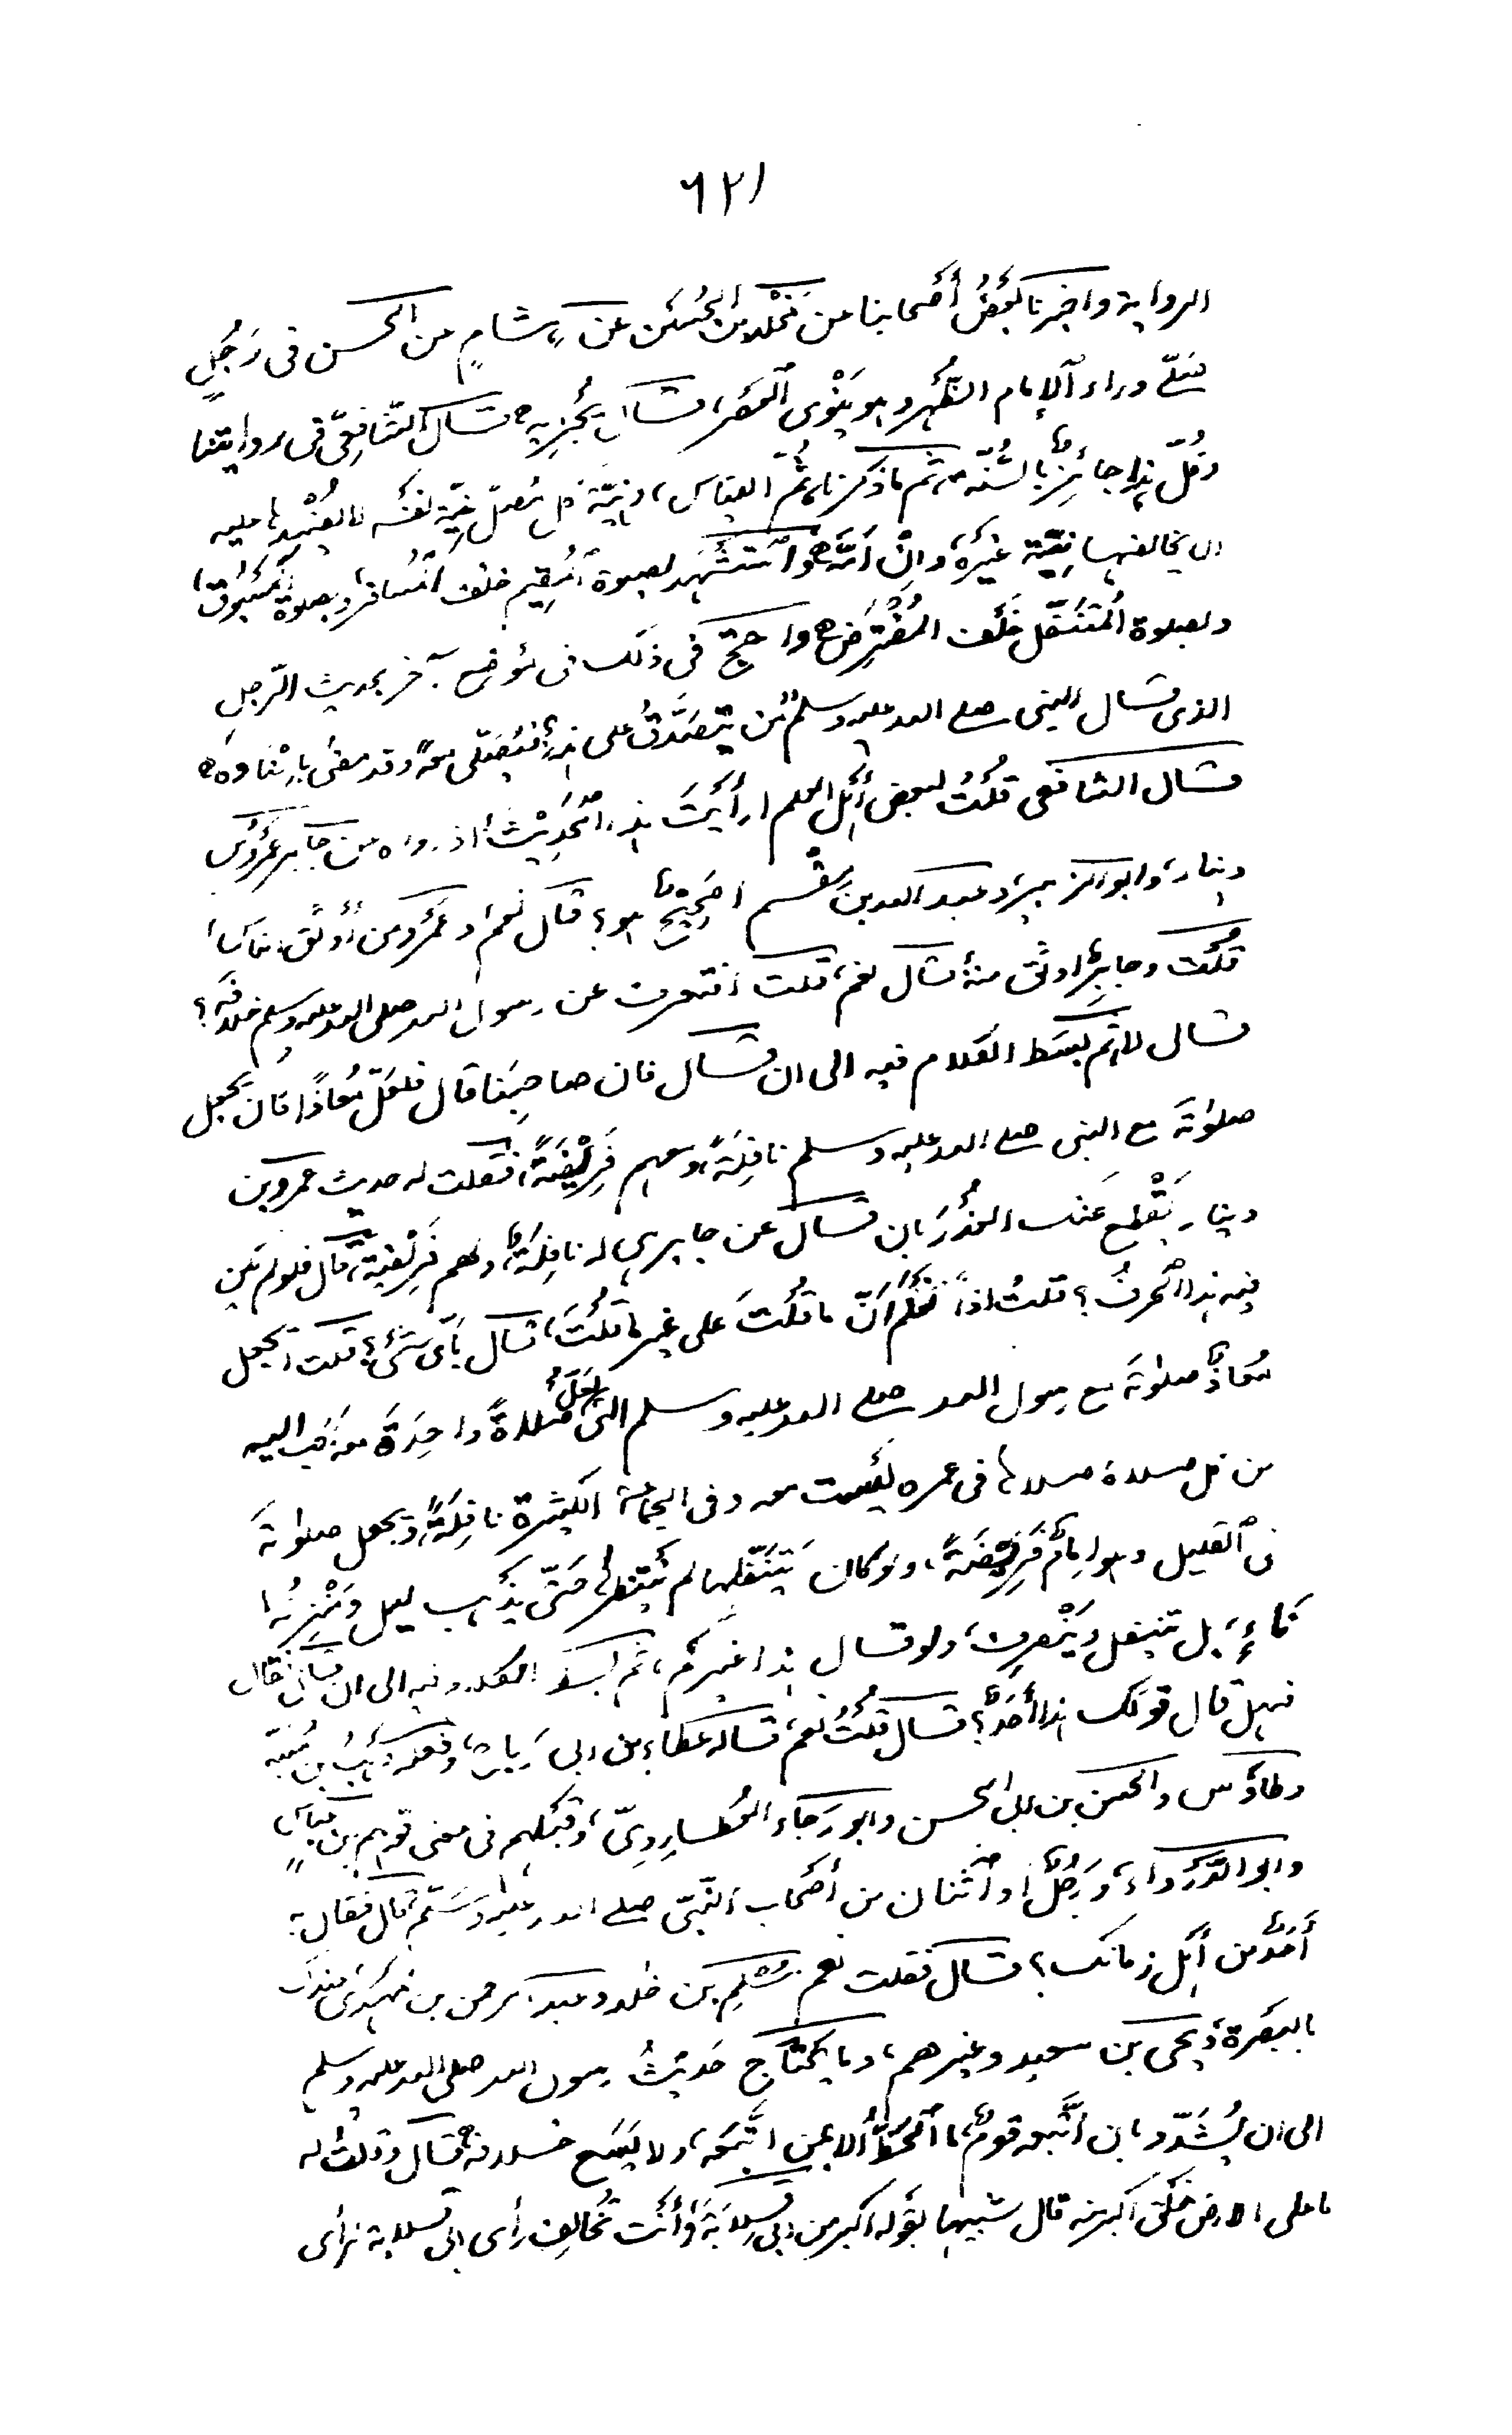 ٦٢١
الرواية واخبرنا بعض أصحابنا عن مخلد بن الحسين عن هشام عن الحسن فى رجل
صلّى وراء الإمام الظهر وهو ينوى العصر، قال يجزيه قال الشافعى فى روايتنا
وكلّ هذا جائز بالسنّة، ثم ما ذكرنا، ثمّ القياس، ونيّة كل مصلّ نيّة نفسه لا يفسدها عليه
ان يخالفها نيّة غيره، وان امّه واستشهد بصلوة المقيم خلف المسافر، وبصلوة المسبوق،
وبصلوة المتنفّل خلف المفترض واحتج فى ذلك فى موضع آخر بحديث الرّجل
الذى قال النبى صلى الله عليه وسلم من يتصدّق على هذا، فيصلّى معه وقد مضى باسناده
قال الشافعى قلت لبعض أهل العلم ارأيت هذا الحديث اذ رواه عن جابر عمرو بن
دينار، وابو الزبير، وعبد الله بن مقسم اصحيح هو؟ قال نعم، وعمرو من أوثق الناس،
قلت وجابر، اوثق منه قال نعم، قلت افتعرف عن رسول الله صلى الله عليه وسلم خلافه؟
قال لا، ثم بسط الكلام فيه الى ان قال فان صاحبنا قال فلعلّ معاذا كان يجعل
صلوته مع النبى صلى الله عليه وسلم نافلة، ومعهم فريضة، فقلت له حديث عمرو بن
دينار يقطع عنك العذر بان قال عن جابر هى له نافلة، ولهم فريضة، قال فلو لم يكن
فيه هذا الحرف؟ قلت اذا نعلم انّ ما قلت على غير ما قلت، قال بأى شىء؟ قلت ايجعل
معاذ صلوته مع رسول الله صلى الله عليه وسلم التى لعلّ صلاة واحدة معه احب اليه
من كل صلاة صلاها فى عمره ليست معه وفى الجماعة الكثيرة نافلة، ويجعل صلوته
فى القليل وهو امام فريضة، ولو كان يتنفّلها لم ينتظرها حتى يذهب ليل ومنزله
ناء، بل تنفل وينصرف، ولو قال هذا غيركم، ثم بسط الكلام فيه الى ان قال
فهل قال قولك هذا أحد؟ قال قلت نعم، قاله عطاء بن ابى رباح، وفعله وهب بن منبّه
وطاؤس والحسن بن ابى الحسن وابو رجاء العطاردىّ، وقبلهم فى معنى قولهم بن عباس
وابو الدّرداء، ورجل او اثنان من أصحاب النّبىّ صلى الله عليه وسلّم قال فقال به
أحد من أهل زمانك؟ قال فقلت نعم مسلم بن خالد وعبد الرحمن بن مهدى
بالبصرة، ويحى بن سعيد وغيرهم، وما يحتاج حديث رسول الله صلى الله عليه وسلم
الى ان يشدّد بان اتّبعه قوم، ما الحظّ الا لمن اتّبعه، ولا يسع خلافه قال وقلت له
ما على الارض خلق اكبر قال شبيها بقوله اكبر من ابى قلابة، وأنت تخالف رأى ابى قلابة لرأى